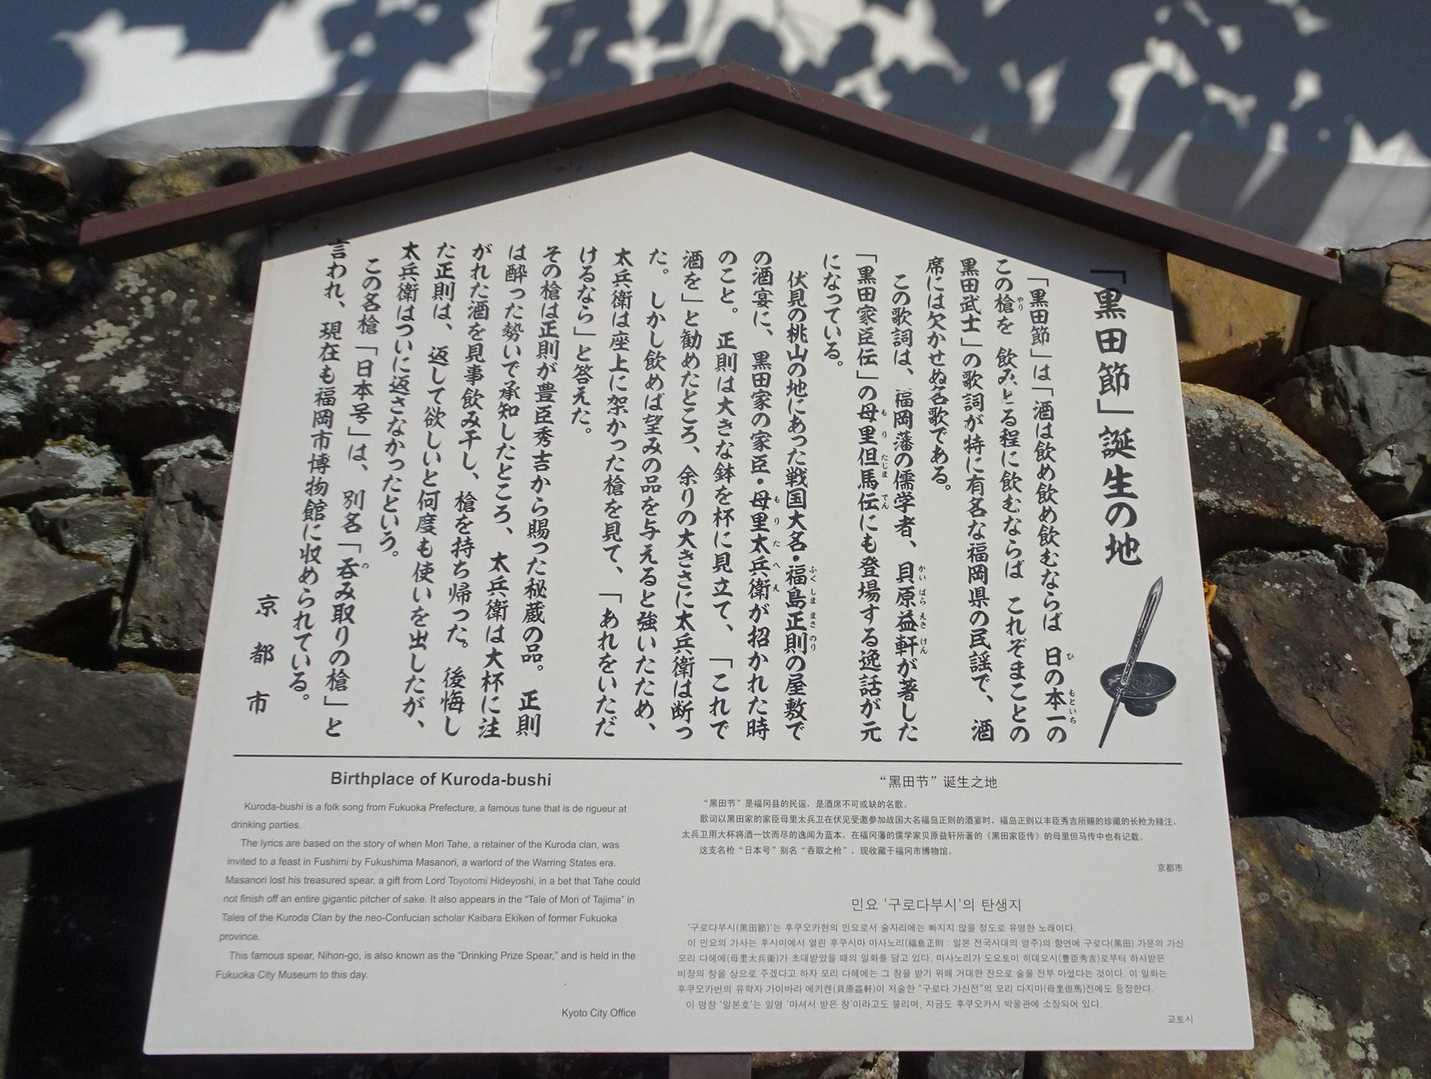 「黒田節」誕生の地
「黒田節」は「酒は飲め飲め飲むならば 日の本一の
この槍を 飲みとる程に飲むならば これぞまことの
黒田武士」の歌詞が特に有名な福岡県の民謡で、酒
席には欠かせぬ名歌である。
この歌詞は、福岡藩の儒学者、貝原益軒が著した
「黒田家臣伝」の母里但馬伝にも登場する逸話が元
になっている。
伏見の桃山の地にあった戦国大名・福島正則の屋敷で
の酒宴に、黒田家の家臣・母里太兵衛が招かれた時
のこと。正則は大きな鉢を杯に見立て、「これで
酒を」と勧めたところ、余りの大きさに太兵衛は断っ
た。しかし飲めば望みの品を与えると強いたため、
太兵衛は座上に架かった槍を見て、「あれをいただ
けるなら」と答えた。
その槍は正則が豊臣秀吉から賜った秘蔵の品。正則
は酔った勢いで承知したところ、太兵衛は大杯に注
がれた酒を見事飲み干し、槍を持ち帰った。後悔し
た正則は、返して欲しいと何度も使いを出したが、
太兵衛はついに返さなかったという。
この名槍「日本号」は、別名「呑み取りの槍」と
言われ、現在も福岡市博物館に収められている。
京都市
Birthplace of Kuroda-bushi
Kuroda-bushi is a folk song from Fukuoka Prefecture, a famous tune that is de rigueur at
drinking parties.
The lyrics are based on the story of when Mori Tahe, a retainer of the Kuroda clan, was
invited to a feast in Fushimi by Fukushima Masanori, a warlord of the Warring States era.
Masanori lost his treasured spear, a gift from Lord Toyotomi Hideyoshi, in a bet that Tahe could
not finish off an entire gigantic pitcher of sake. It also appears in the "Tale of Mori of Tajima" in
Tales of the Kuroda Clan by the neo-Confucian scholar Kaibara Ekiken of former Fukuoka
province.
This famous spear, Nihon-go, is also known as the "Drinking Prize Spear," and is held in the
Fukuoka City Museum to this day.
Kyoto City Office
“黑田节”诞生之地
“黑田节”是福冈县的民谣，是酒席不可或缺的名歌。
歌词以黑田家的家臣母里太兵卫在伏见受邀参加战国大名福岛正则的酒宴时，福岛正则以丰臣秀吉所赐的珍藏的长枪为赌注，
太兵卫用大杯将酒一饮而尽的逸闻为蓝本。在福冈藩的儒学家贝原益轩所著的《黑田家臣传》的母里但马传中也有记载。
这支名枪“日本号”别名“吞取之枪”，现收藏于福冈市博物馆。
京都市
민요 '구로다부시'의 탄생지
'구로다부시(黒田節)'는 후쿠오카현의 민요로서 술자리에는 빠지지 않을 정도로 유명한 노래이다.
이 민요의 가사는 후시미에서 열린 후쿠시마 마사노리(福島正則 : 일본 전국시대의 영주)의 향연에 구로다(黒田) 가문의 가신
모리 다헤에(母里太兵衛)가 초대받았을 때의 일화를 담고 있다. 마사노리가 도요토미 히데요시(豊臣秀吉)로부터 하사받은
비장의 창을 상으로 주겠다고 하자 모리 다헤에는 그 창을 받기 위해 거대한 잔으로 술을 전부 마셨다는 것이다. 이 일화는
후쿠오카번의 유학자 가이바라 에키켄(貝原益軒)이 저술한 "구로다 가신전"의 모리 다지마(母里但馬)전에도 등장한다.
이 명창 '일본호'는 일명 '마셔서 받은 창'이라고도 불리며, 지금도 후쿠오카시 박물관에 소장되어 있다.
교토시